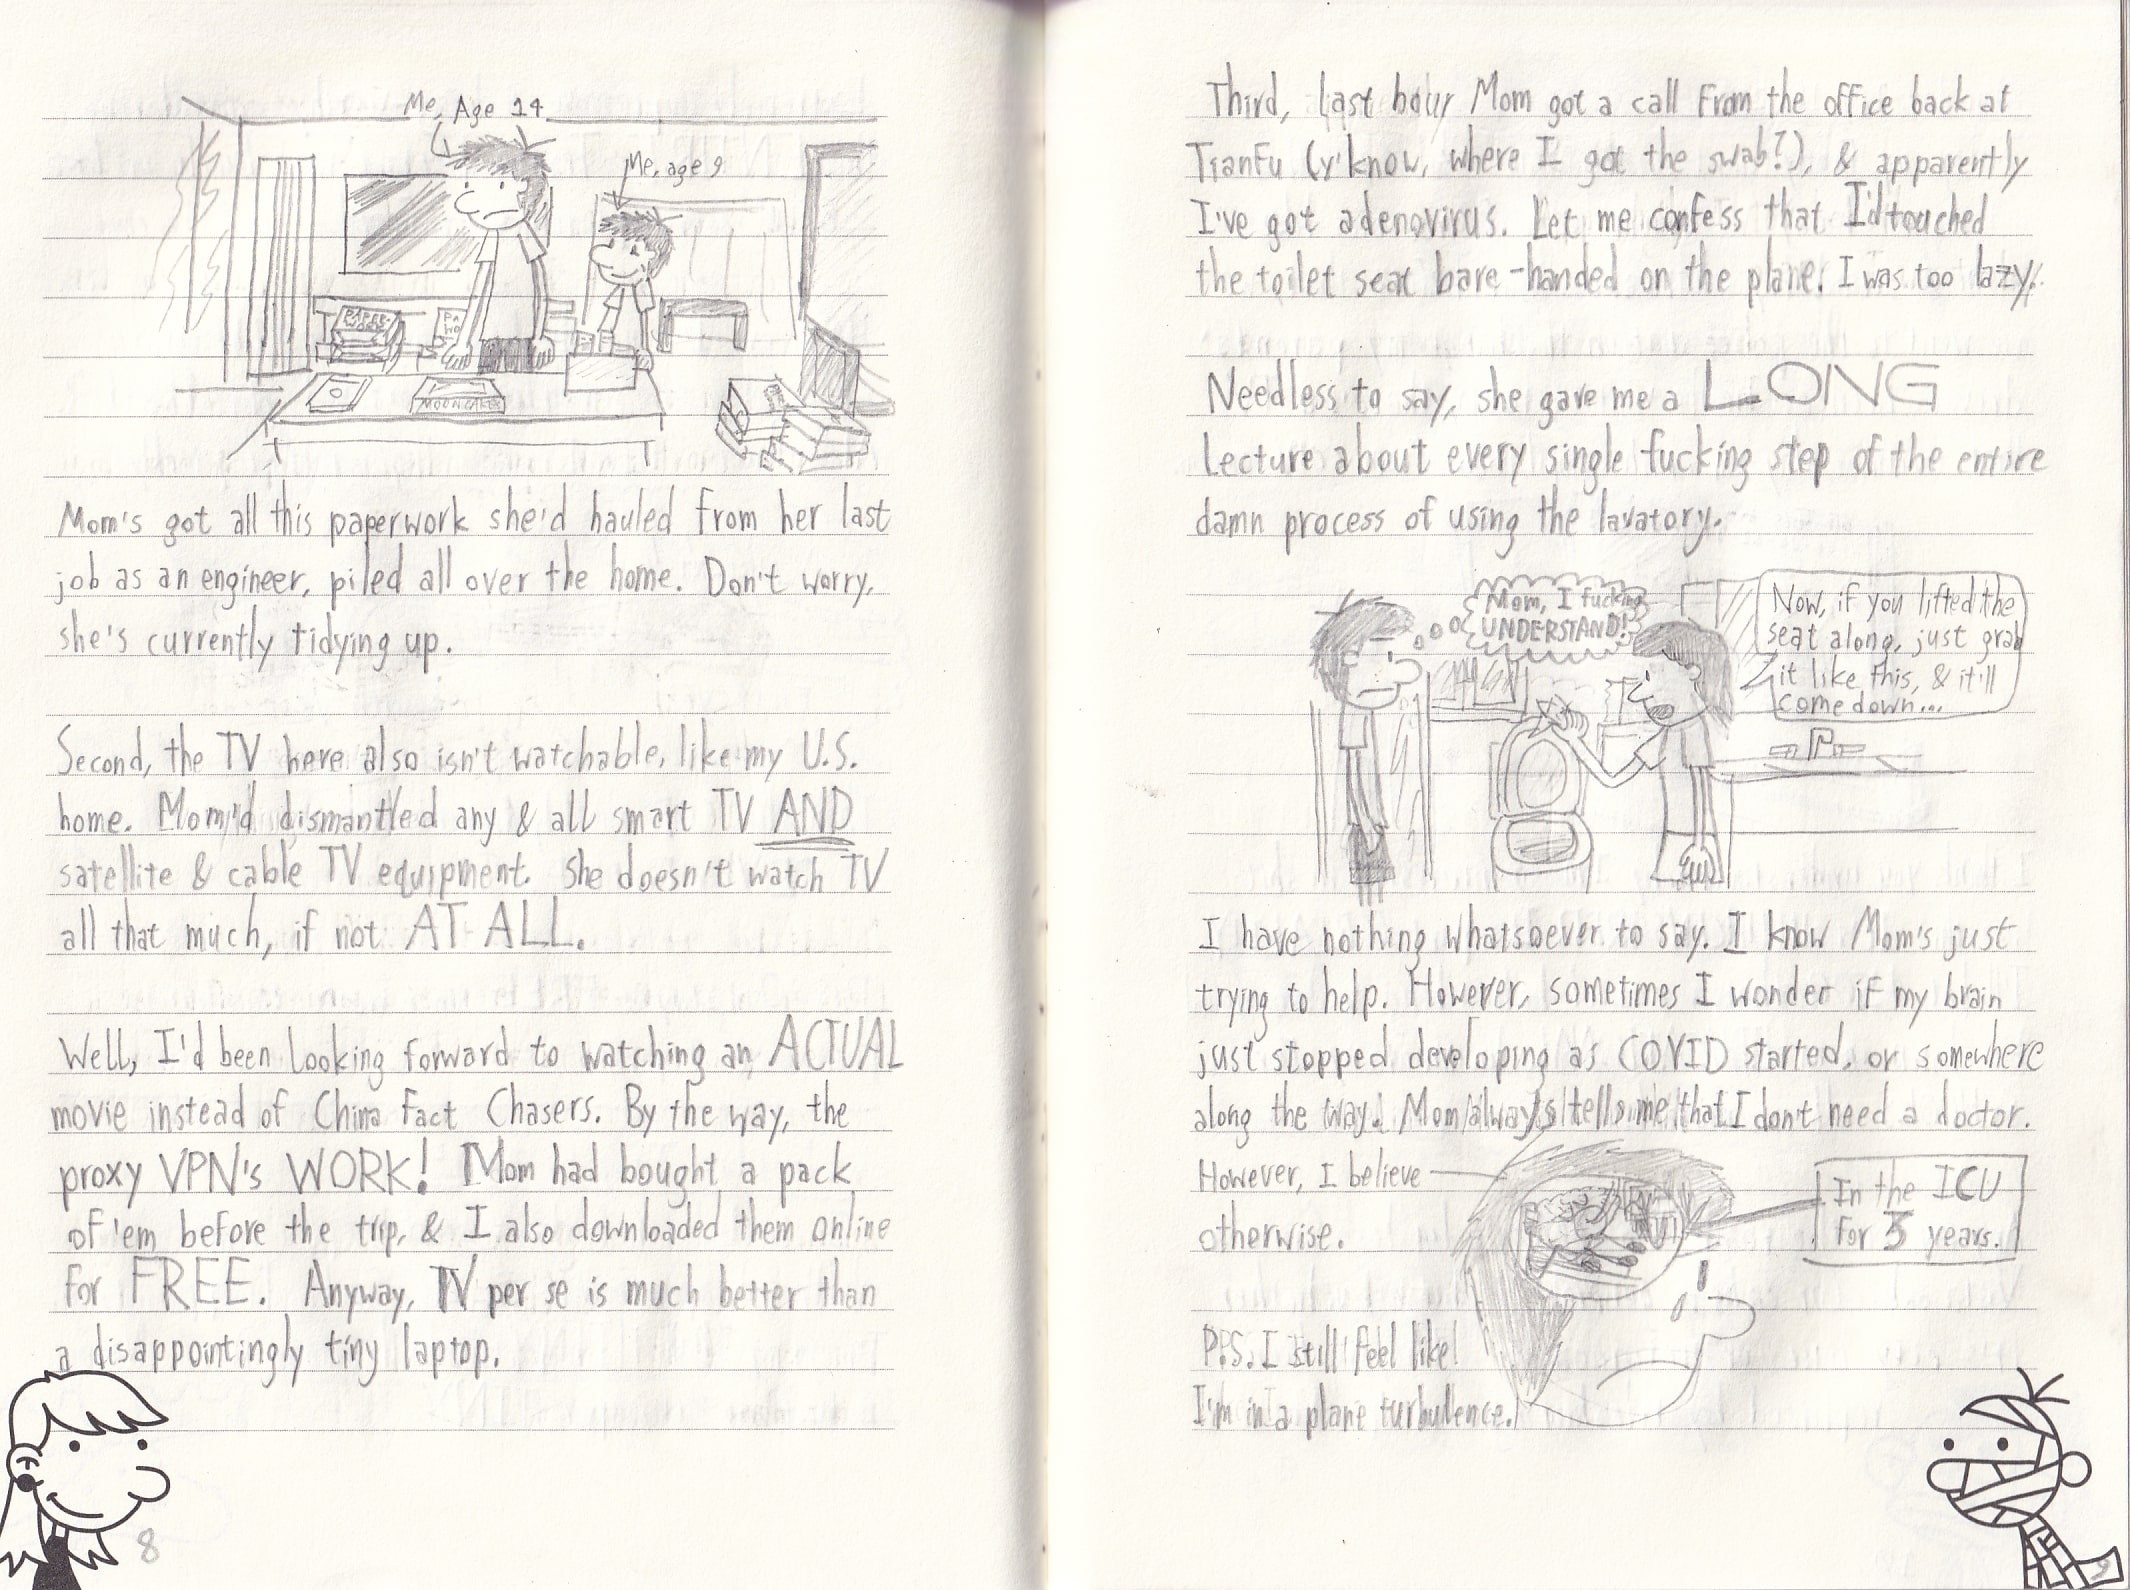 Me, Age 14
Me, age 9
PAPER-
WORK
PA
WO
MOONCAKES
Mom's got all this paperwork she'd hauled from her last
job as an engineer, piled all over the home. Don't worry,
she's currently tidying up.
Second, the TV here also isn't watchable, like my U.S.
home. Mom'd dismantled any & all smart TV AND
satellite & cable TV equipment. She doesn't watch TV
all that much, if not AT ALL.
Well, I'd been looking forward to watching an ACTUAL
movie instead of China Fact Chasers. By the way, the
proxy VPN's WORK! Mom had bought a pack
of 'em before the trip, & I also downloaded them online
for FREE. Anyway, TV per se is much better than
a disappointingly tiny laptop.
8
Third, last hour Mom got a call from the office back at
TianFu (y'know, where I got the swab?), & apparently
I've got adenovirus. Let me confess that I'd touched
the toilet seat bare-handed on the plane. I was too lazy.
Needless to say, she gave me a LONG
lecture about every single fucking step of the entire
damn process of using the lavatory.
Mom, I fucking
UNDERSTAND!
Now, if you lifted the
seat along, just grab
it like this, & it'll
come down...
I have nothing whatsoever to say. I know Mom's just
trying to help. However, sometimes I wonder if my brain
just stopped developing as COVID started, or somewhere
along the way. Mom always tells me that I don't need a doctor.
However, I believe
otherwise.
In the ICU
for 3 years.
P.S. I still feel like
I'm in a plane turbulence.
9